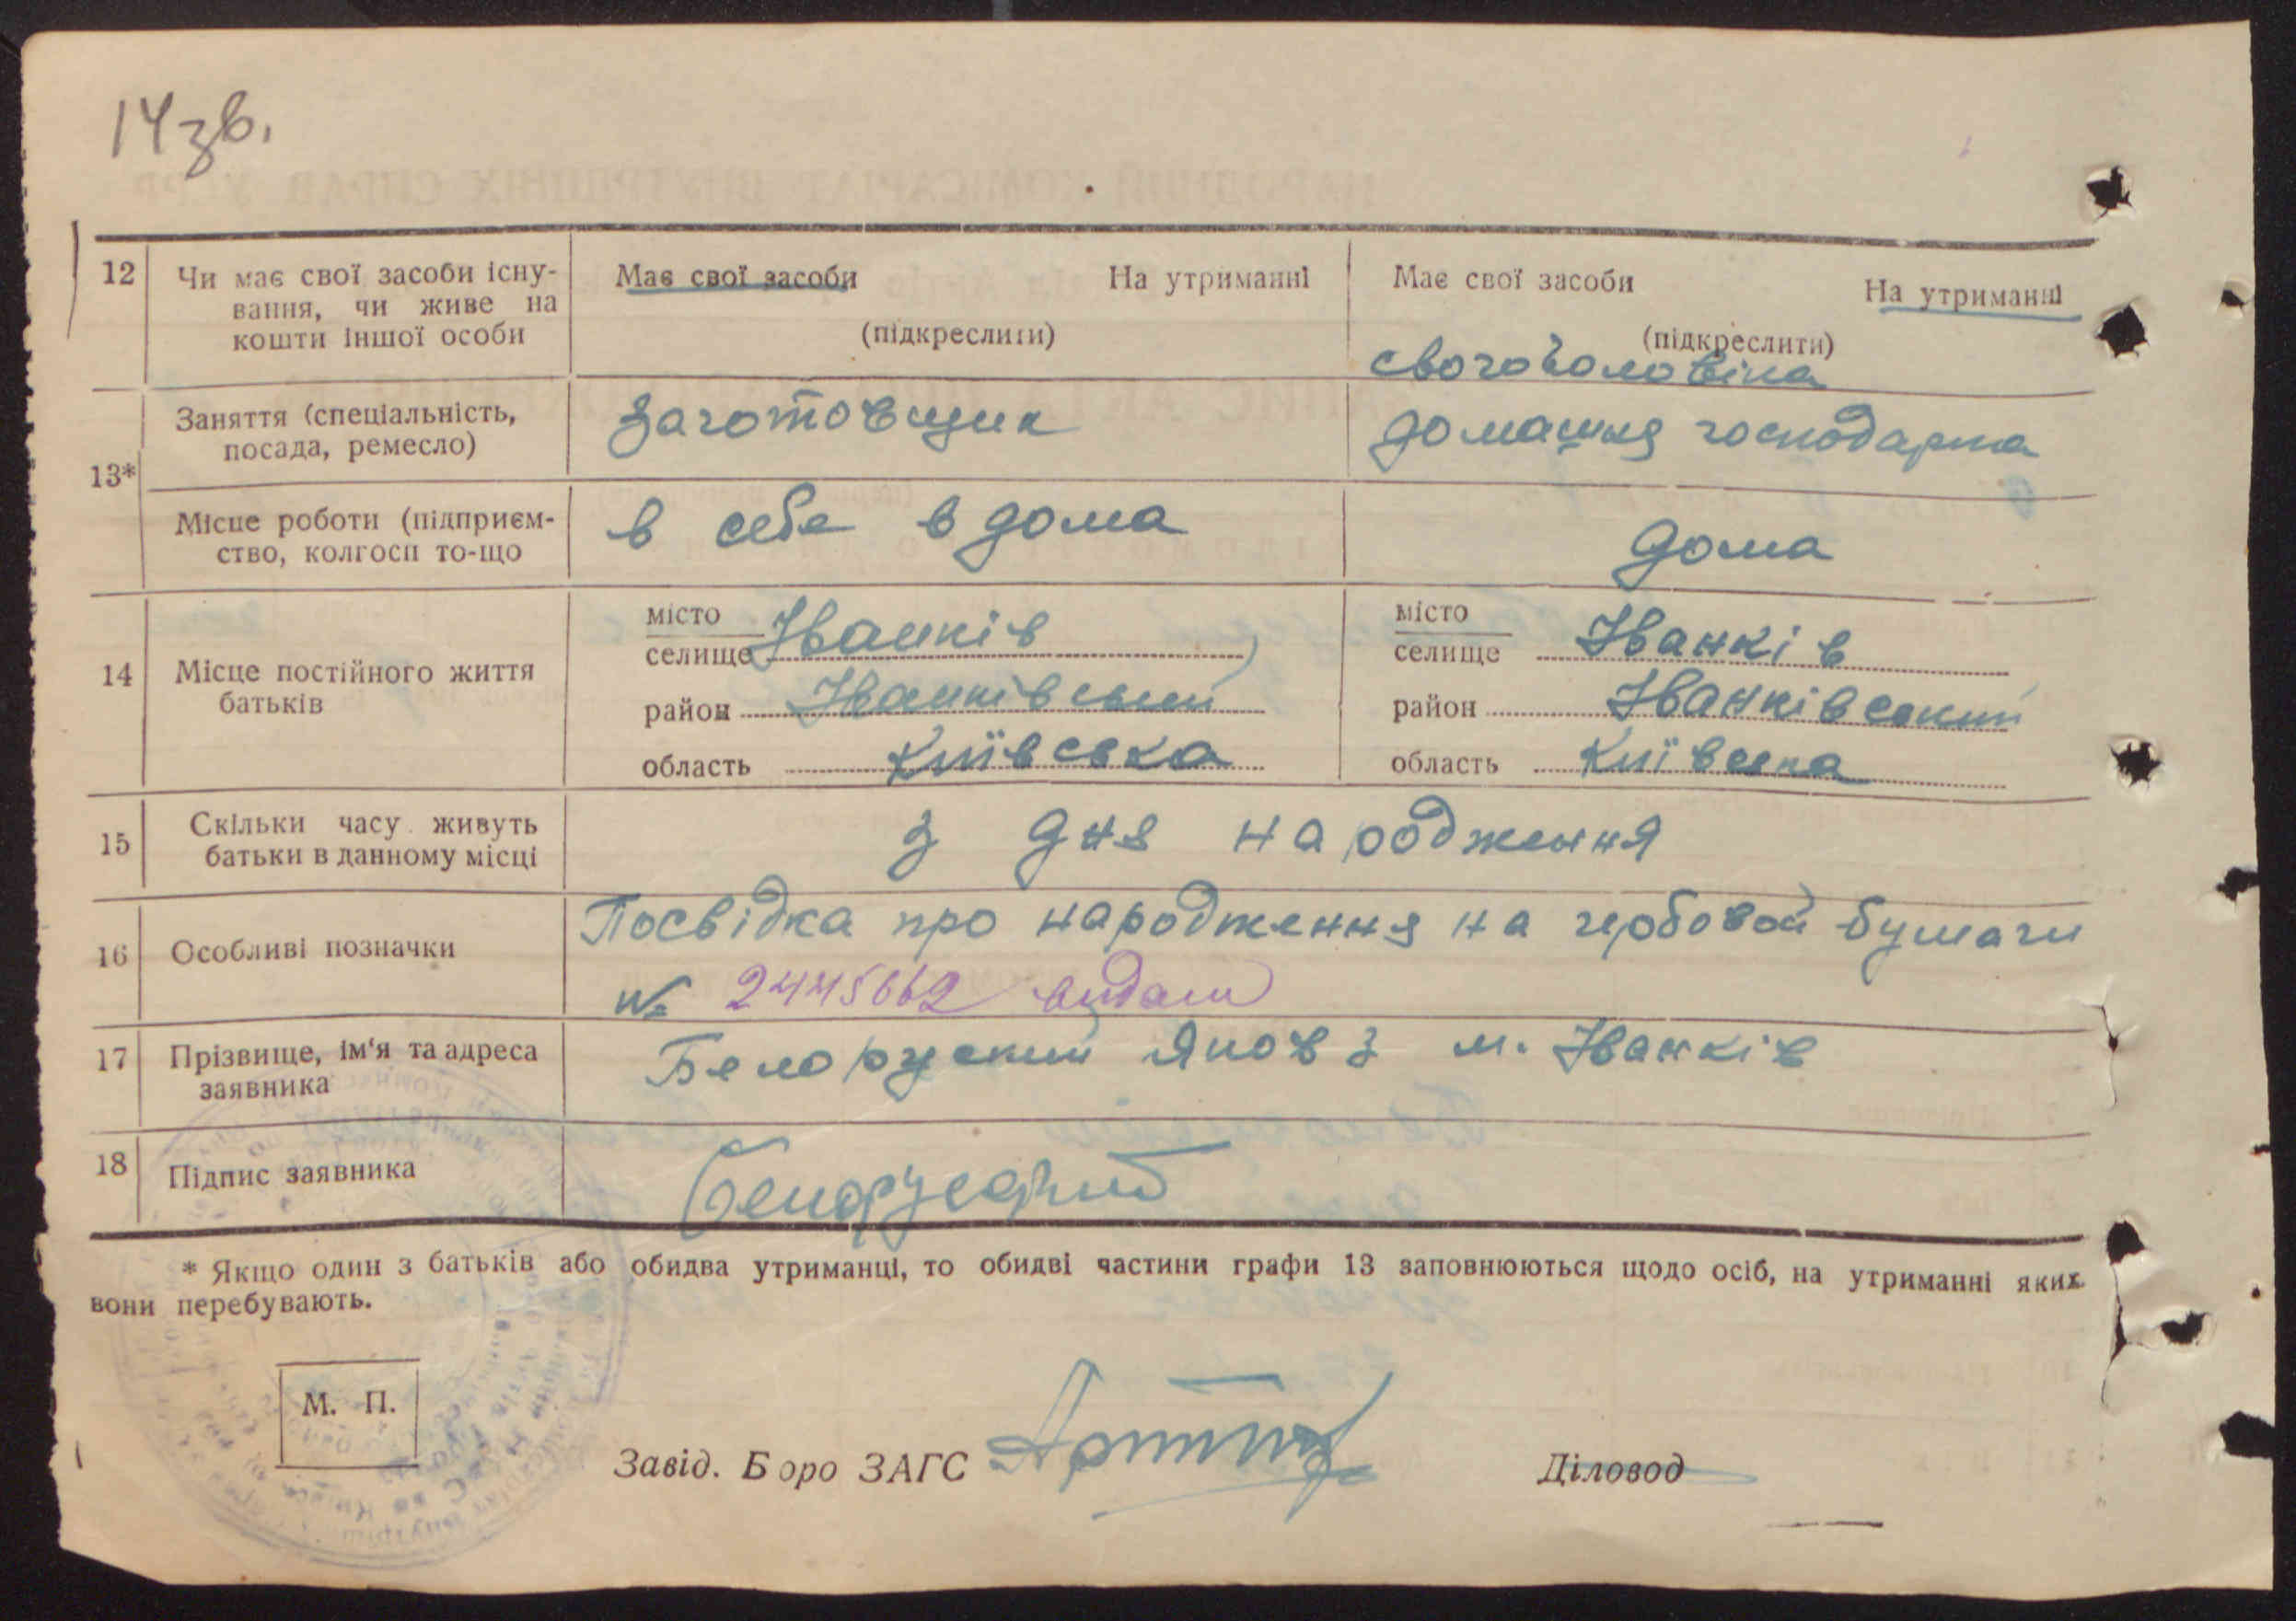 14 зв.
12 Чи має свої засоби існу- Має свої засоби На утриманні Має свої засоби На утриманні
вання, чи живе на
кошти іншої особи (підкреслити) (підкреслити)
свого чоловіка
13* Заняття (спеціальність, заготовщик домашня господарка
посада, ремесло)
Місце роботи (підприєм- в себе в дома дома
ство, колгосп то-що
14 Місце постійного життя
батьків
місто
селище Іванків
район Іванківський
область Київська
місто
селище Іванків
район Іванківський
область Київська
15 Скільки часу живуть з дня народження
батьки в данному місці
16 Особливі позначки Посвідка про народження на гербовой бумаги
№ 2445662 видан
17 Прізвище, ім'я та адреса Белоруский Яков з м. Іванків
заявника
18 Підпис заявника Белоруский
* Якщо один з батьків або обидва утриманці, то обидві частини графи 13 заповнюються щодо осіб, на утриманні яких
вони перебувають.
М. П.
Завід. Бюро ЗАГС Діловод